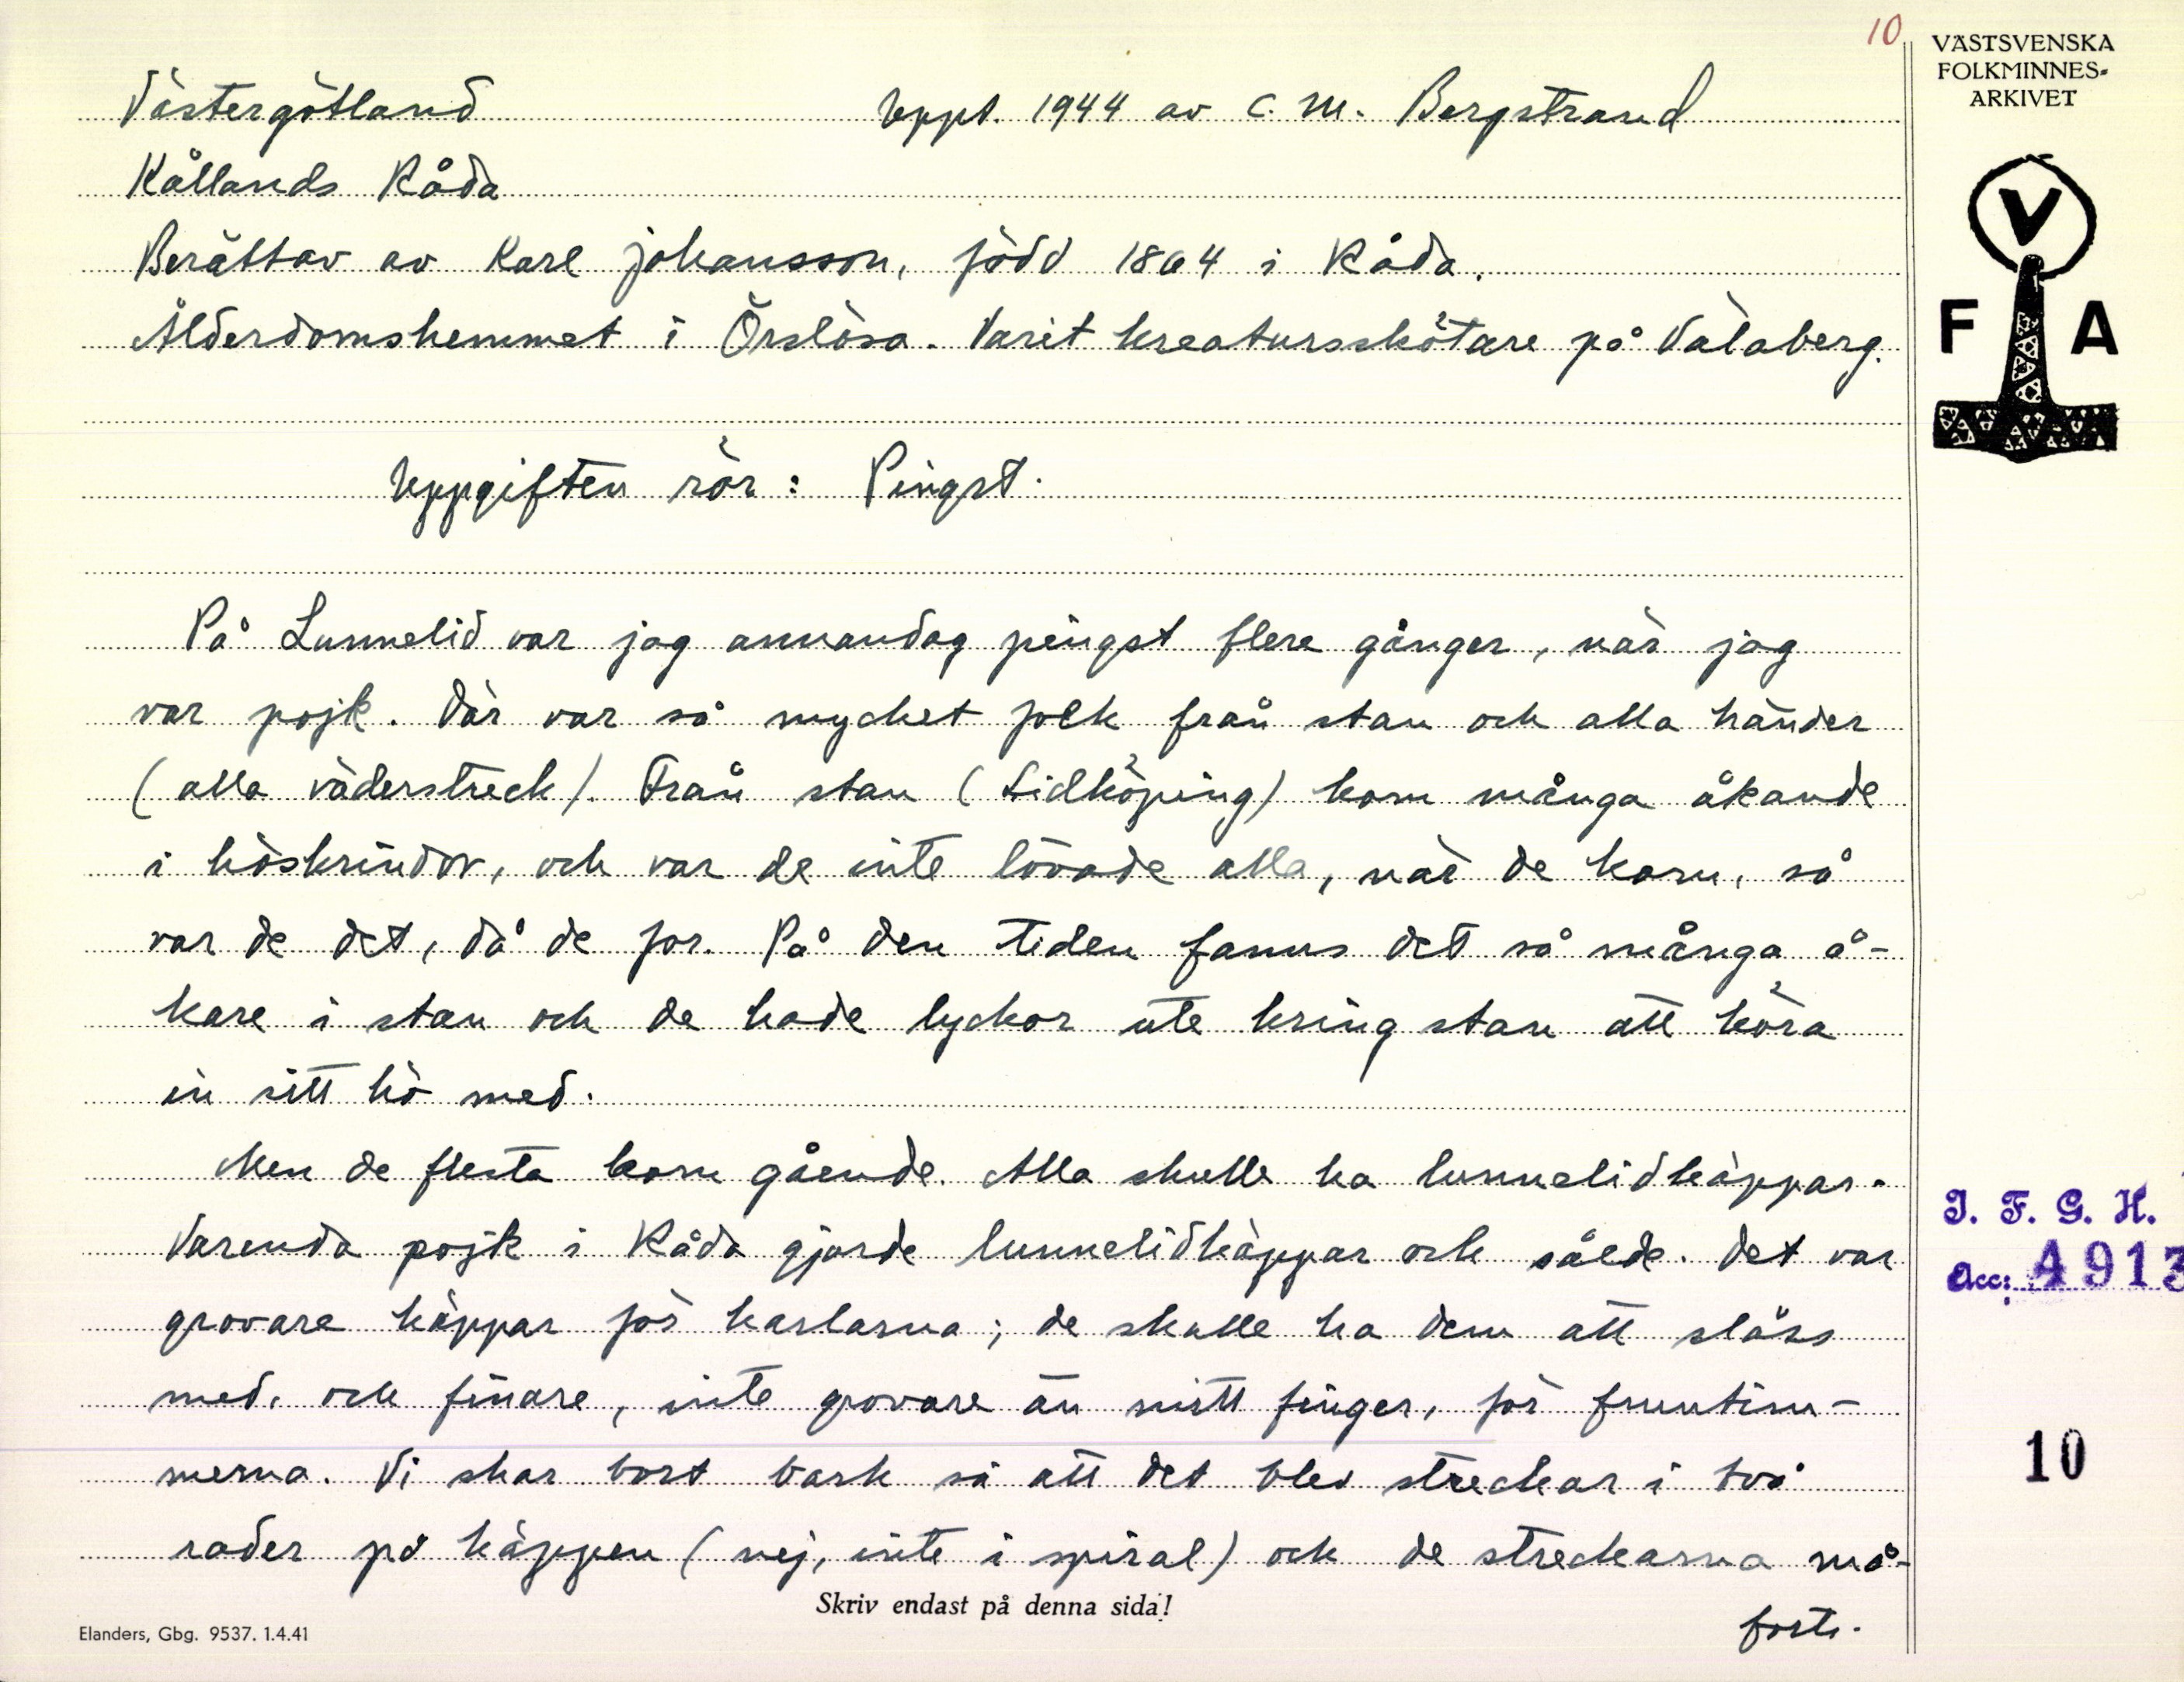 10
VÄSTSVENSKA
FOLKMINNES-
ARKIVET
V
F A
Västergötland Uppt. 1944 av C. M. Bergstrand
Kållands Råda
Berättav av Karl Johansson, född 1864 i Råda.
Ålderdomshemmet i Örslösa. Varit kreatursskötare på Väla berg.
Uppgiften rör: Pingst.
På Lunnelid var jag annandag pingst flere gånger, när jag
var pojk. Där var så mycket folk från stan och alla händer
(alla väderstreck). Från stan (Lidköping) kom många åkande
i höskrindor, och var de inte lövade alla, när de kom, så
var de det, då de for. På den tiden fanns det så många å-
kare i stan och de hade lyckor ute kring stan att köra
in sitt hö med.
Men de flesta kom gående. Alla skulle ha lunnelidkäppar.
Varenda pojk i Råda gjorde lunnelidkäppar och sålde. Det var
grovare käppar för karlarna; de skulle ha dem att slåss
med, och finare, inte grovare än mitt finger, för fruntim-
merna. Vi skar bort bark så att det blev streckar i två
rader på käppen (nej, inte i spiral) och de streckarna må-
forts.
Skriv endast på denna sida!
Elanders, Gbg. 9537. 1.4.41
I. F. G. H.
Acc: 4913
10